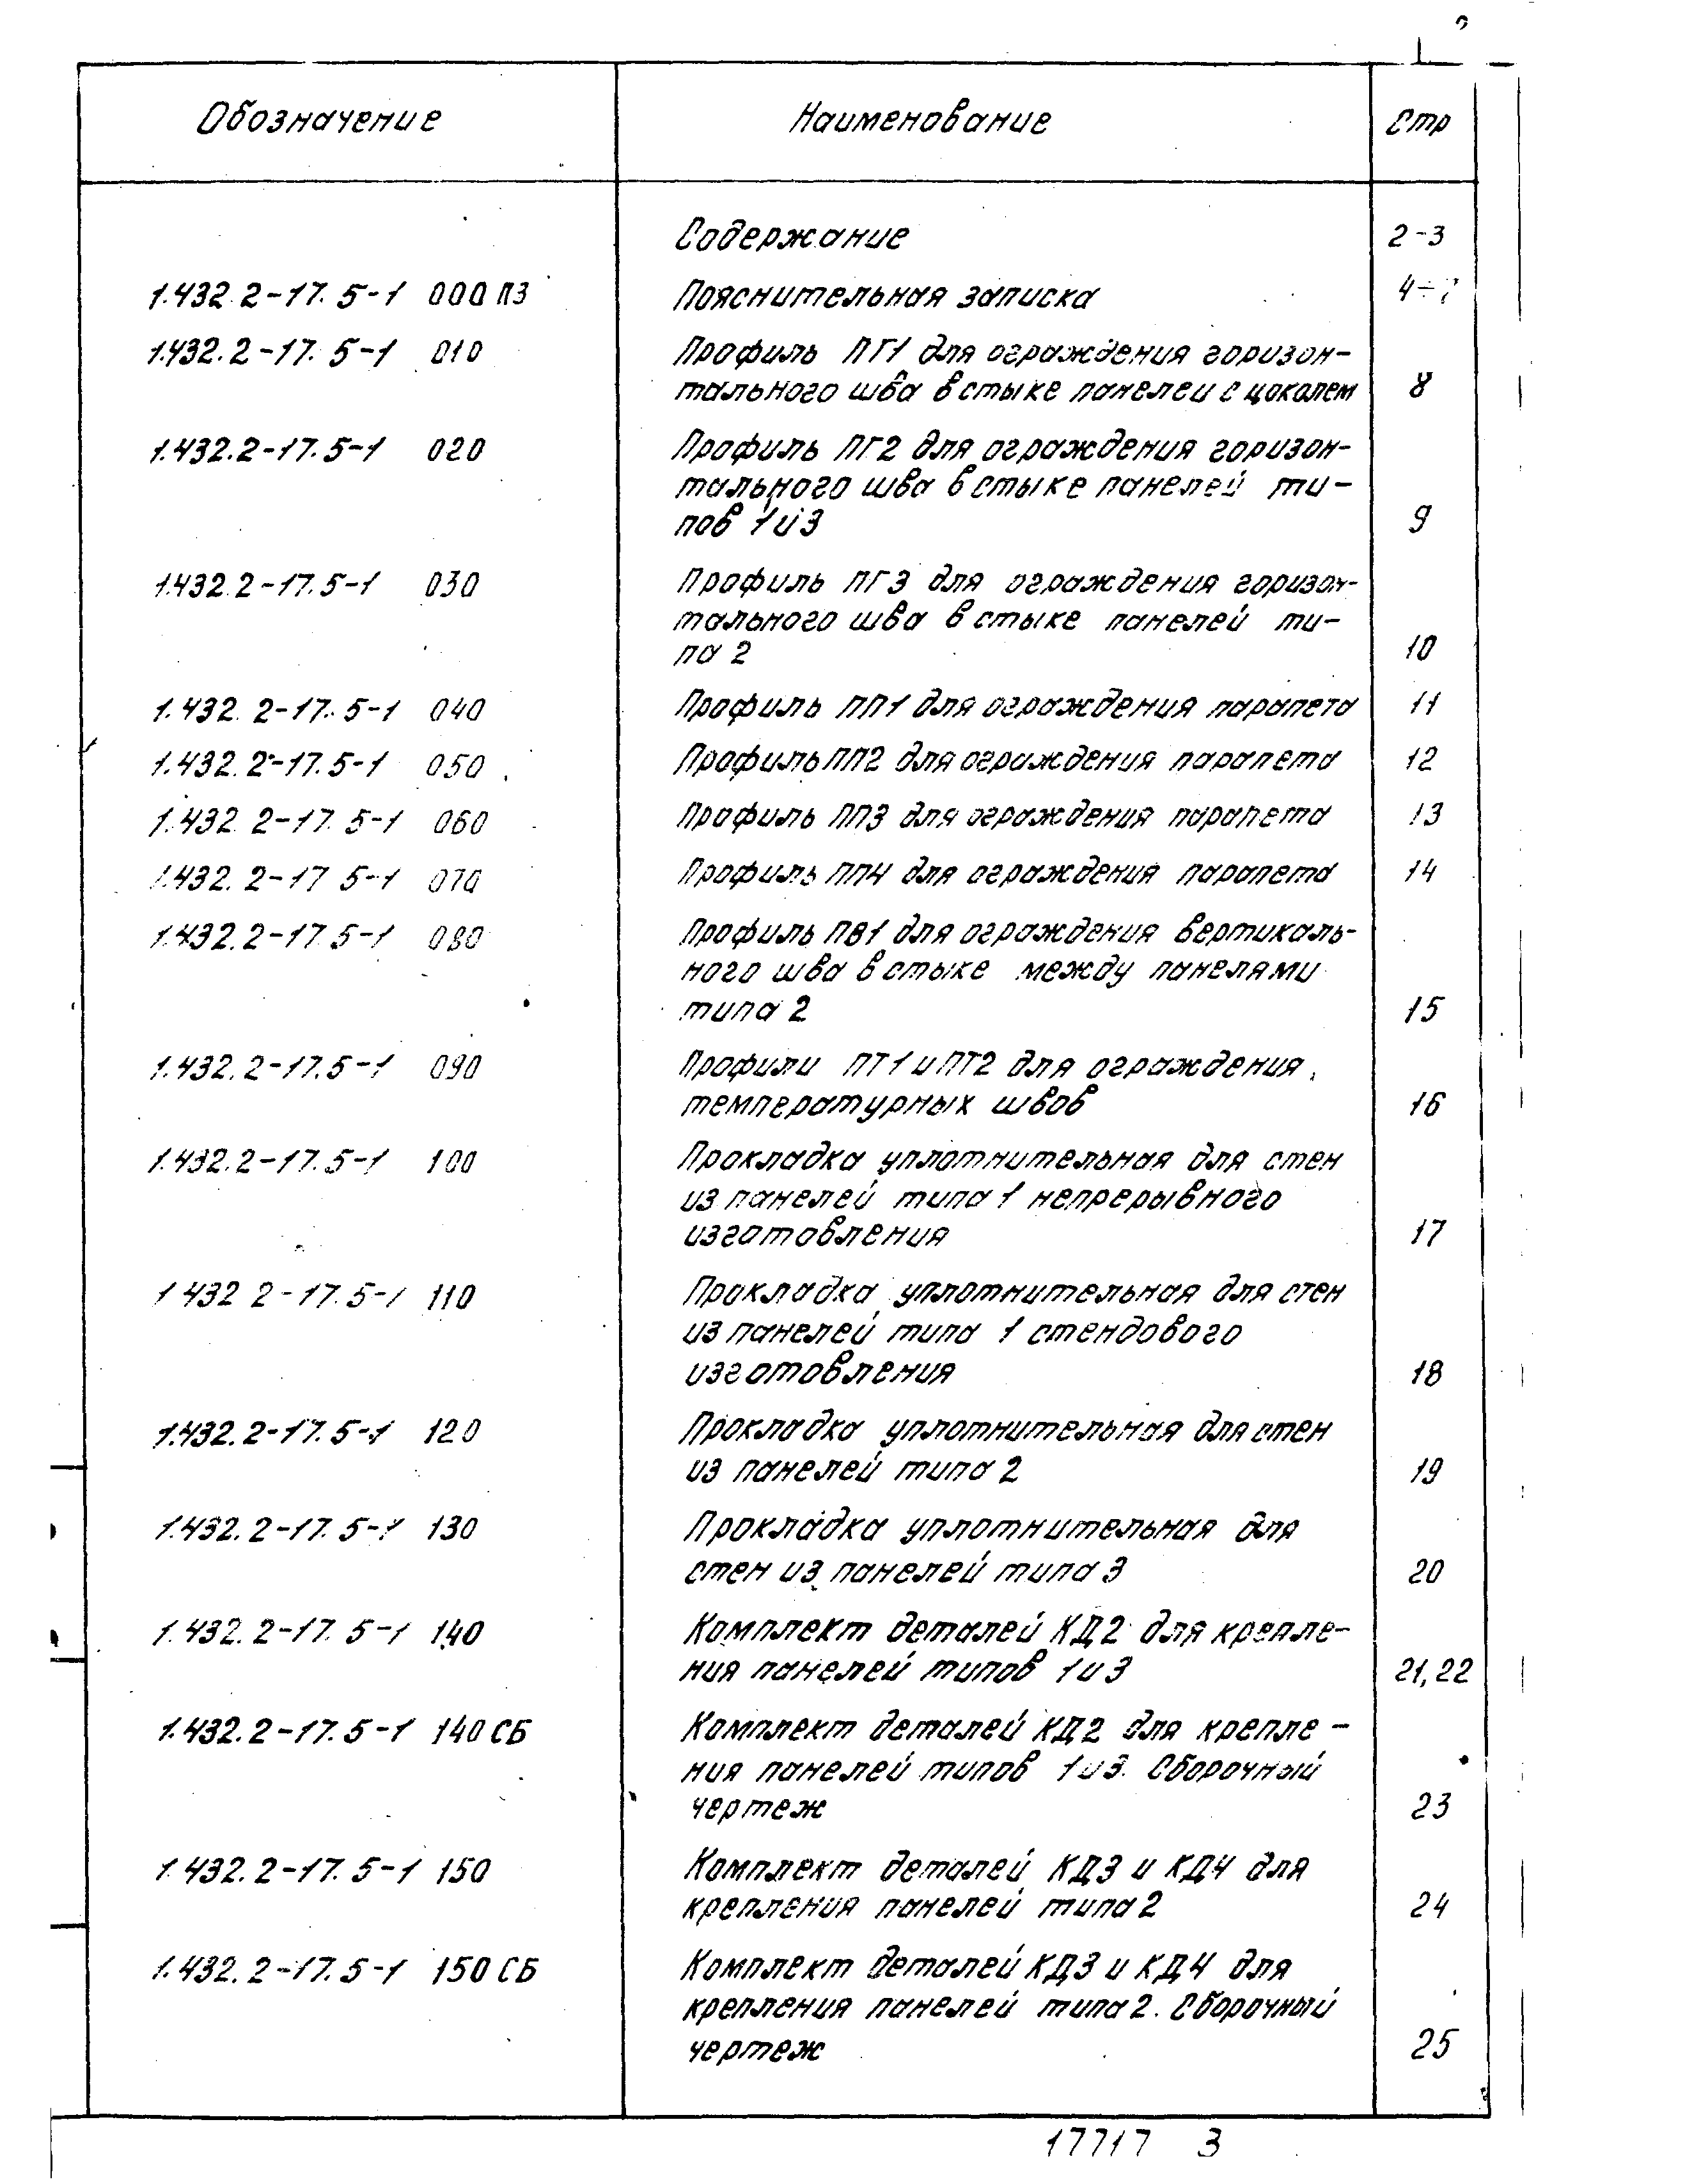 2
Обозначение Наименование Стр
Содержание 2-3
1.432.2-17.5-1 000 ПЗ Пояснительная записка 4÷7
1.432.2-17.5-1 010 Профиль ПГ1 для ограждения горизон-
тального шва в стыке панелей с цоколем 8
1.432.2-17.5-1 020 Профиль ПГ2 для ограждения горизон-
тального шва в стыке панелей ти-
пов 1 и 3 9
1.432.2-17.5-1 030 Профиль ПГ3 для ограждения горизон-
тального шва в стыке панелей ти-
па 2 10
1.432.2-17.5-1 040 Профиль ПП1 для ограждения парапета 11
1.432.2-17.5-1 050 Профиль ПП2 для ограждения парапета 12
1.432.2-17.5-1 060 Профиль ПП3 для ограждения парапета 13
1.432.2-17 5-1 070 Профиль ПП4 для ограждения парапета 14
1.432.2-17.5-1 080 Профиль ПВ1 для ограждения вертикаль-
ного шва в стыке между панелями
типа 2 15
1.432.2-17.5-1 090 Профили ПТ1 и ПТ2 для ограждения
температурных швов 16
1.432.2-17.5-1 100 Прокладка уплотнительная для стен
из панелей типа 1 непрерывного
изготовления 17
1 432 2-17.5-1 110 Прокладка уплотнительная для стен
из панелей типа 1 стендового
изготовления 18
1.432.2-17.5-1 120 Прокладка уплотнительная для стен
из панелей типа 2 19
1.432.2-17.5-1 130 Прокладка уплотнительная для
стен из панелей типа 3 20
1.432.2-17.5-1 140 Комплект деталей КД2 для крепле-
ния панелей типов 1 и 3 21,22
1.432.2-17.5-1 140 СБ Комплект деталей КД2 для крепле-
ния панелей типов 1 и 3. Сборочный
чертеж 23
1.432.2-17.5-1 150 Комплект деталей КД3 и КД4 для
крепления панелей типа 2 24
1.432.2-17.5-1 150 СБ Комплект деталей КД3 и КД4 для
крепления панелей типа 2. Сборочный
чертеж 25
17717 3